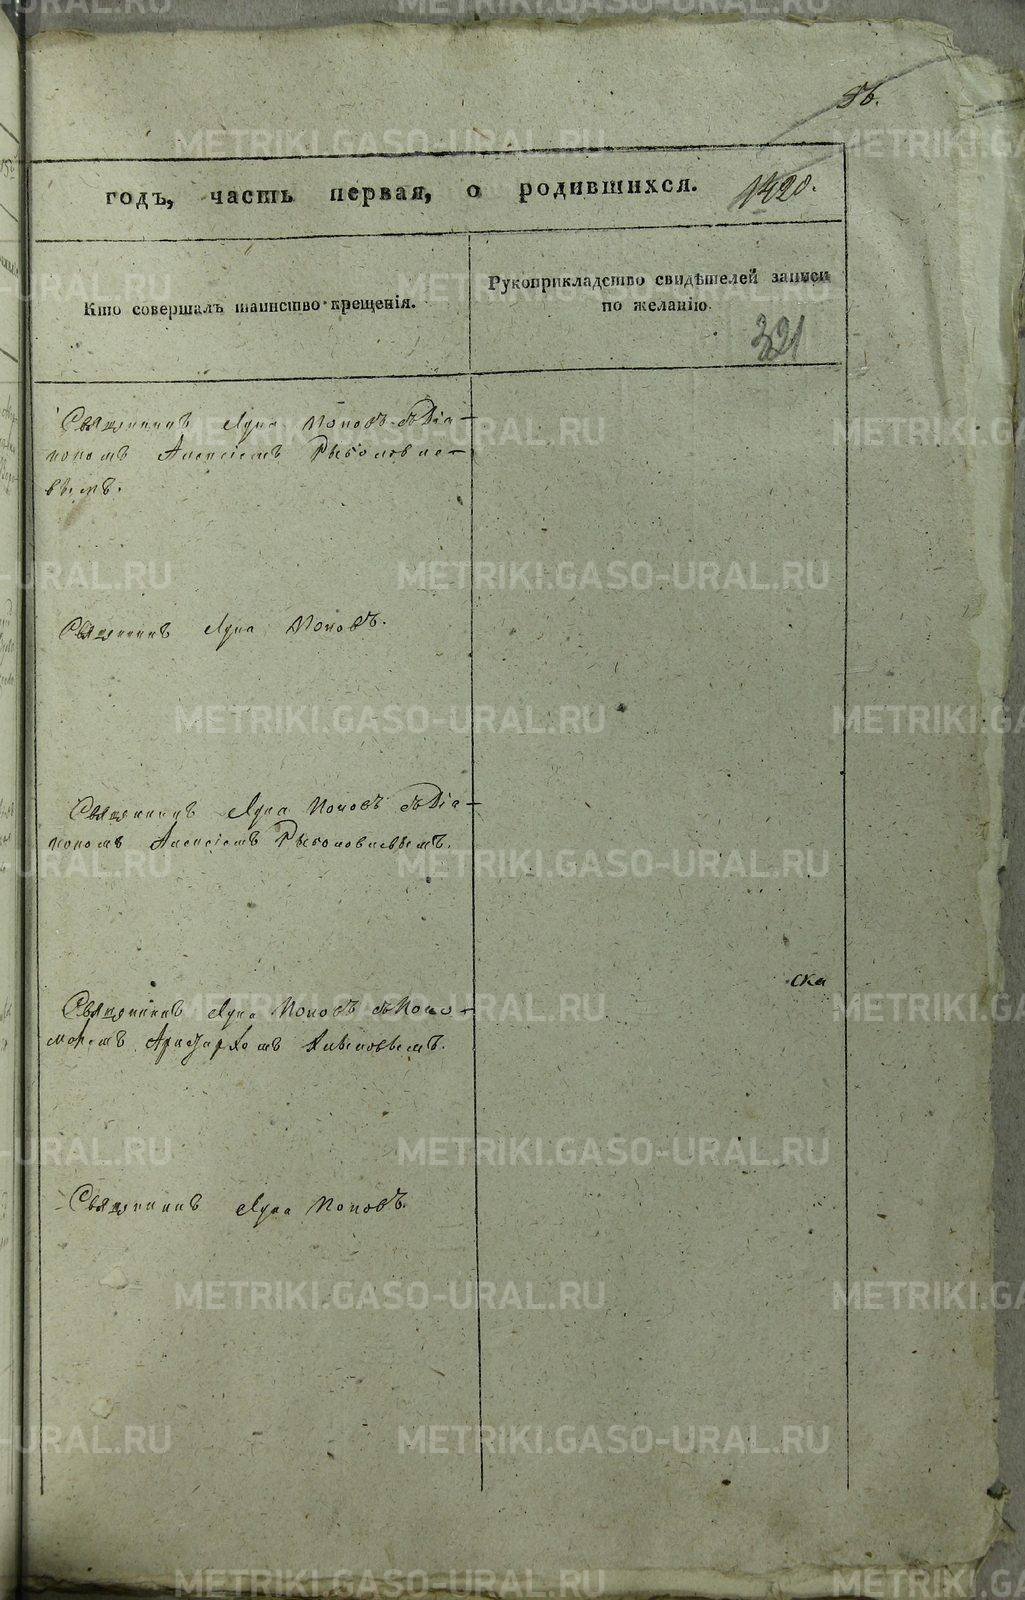 56.
годъ, часть первая, о родившихся. 1420.
Кто совершалъ таинство крещенія.
Рукоприкладство свидѣтелей записи
по желанію.
321
Священникъ Лука Поповъ съ Діа-
кономъ Алексіемъ Рыболовле-
вымъ.
Священникъ Лука Поповъ.
Священникъ Лука Поповъ съ Діа-
кономъ Алексіемъ
ска
Священникъ Лука Поповъ съ Поно-
маремъ
Священникъ Лука Поповъ.
METRIKI.GASO-URAL.RU